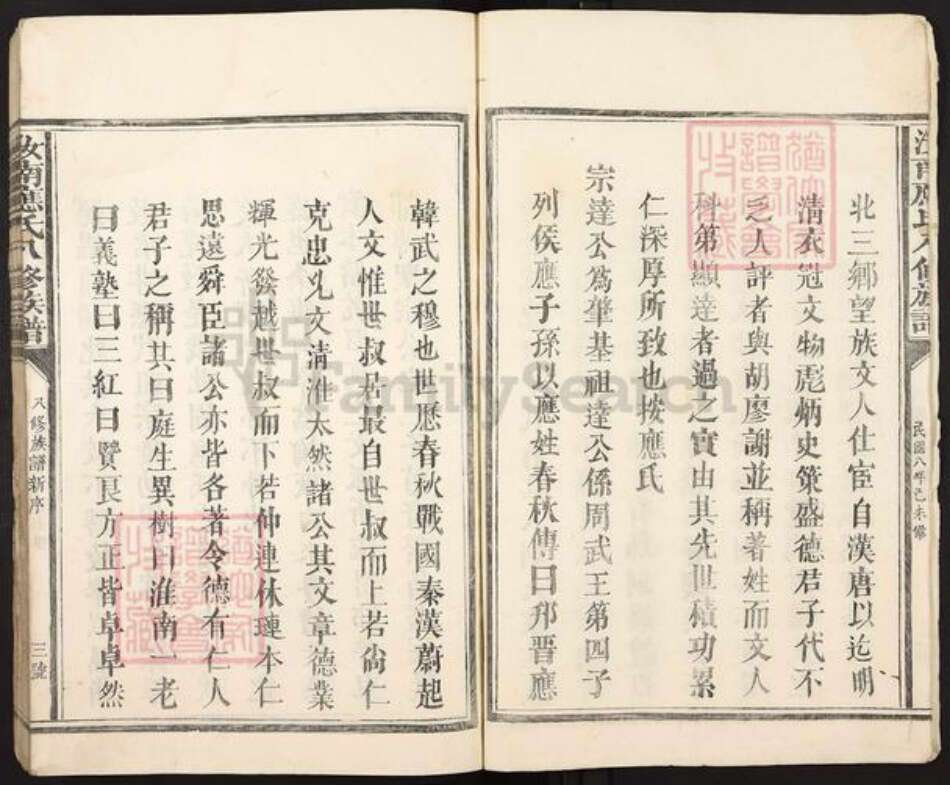 北三鄉望族文人仕宦自漢唐以迄明
清衣冠文物彪炳史策盛德君子代不
乏人評者與胡廖謝並稱著姓而文人
科第顯達者過之實由其先世積功累
仁深厚所致也按應氏
宗達公爲肇基祖達公係周武王第四子
列侯應子孫以應姓春秋傳曰邘晋應
民國八年己未修
韓武之穆也世歷春秋戰國秦漢蔚起
人文惟世叔君最自世叔而上若尙仁
克忠凡文淸淮太然諸公其文章德業
輝光發越世叔而下若仲連休璉本仁
思遠舜臣諸公亦皆各著令德有仁人
君子之稱其曰庭生異樹曰淮南一老
曰義塾曰三紅曰賢良方正皆卓卓然
汝南應氏八修族譜
八修族譜新序
三號
FamilySearch